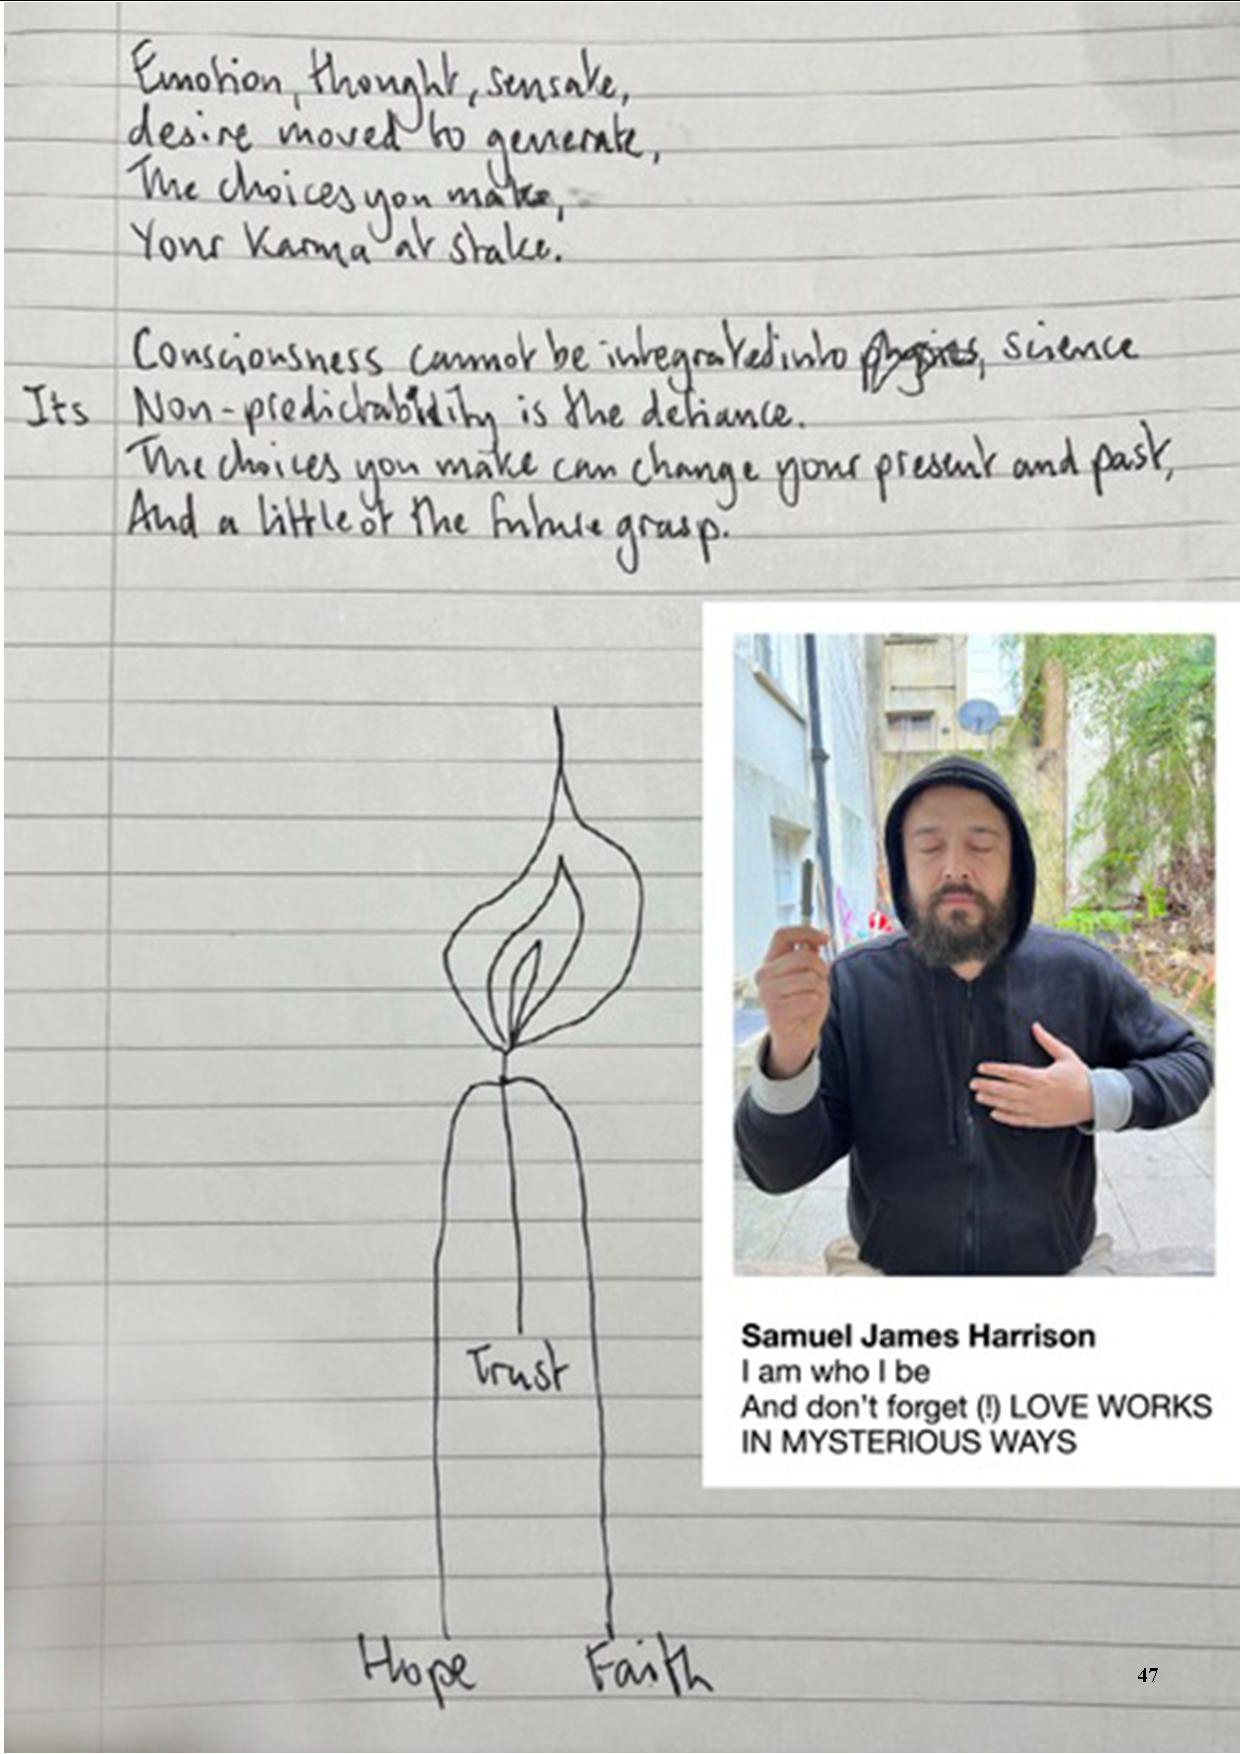 Emotion, thought, sensate,
desire moved to generate,
The choices you make,
Your Karma at stake.
Consciousness cannot be integrated into physics, science
Its Non-predictability is the defiance.
The choices you make can change your present and past,
And a little of the future grasp.
Trust
Hope Faith
Samuel James Harrison
I am who I be
And don't forget (!) LOVE WORKS
IN MYSTERIOUS WAYS
47